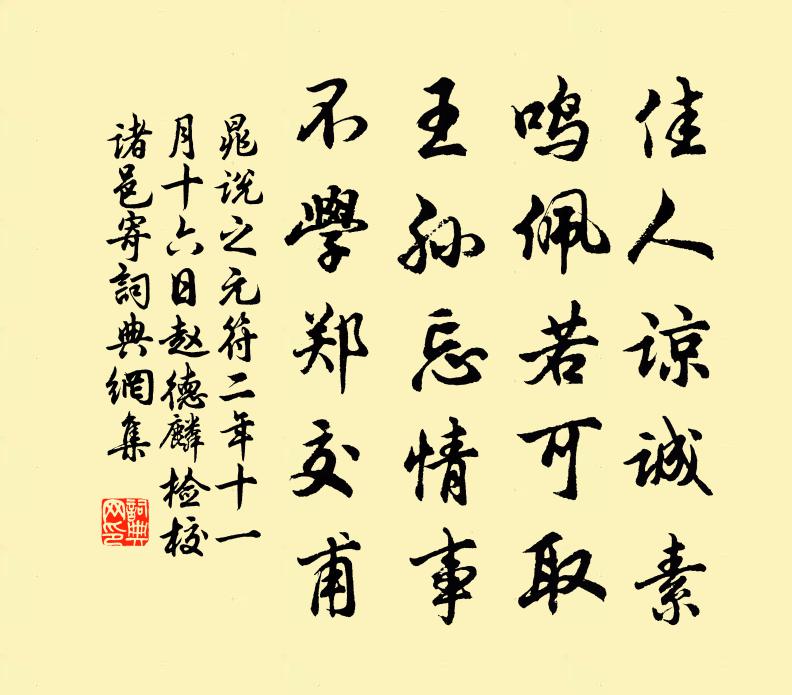 佳人谅诚素
鸣佩若可取
王孙忘情事
不學郑交甫
晁说之元符二年十一
月十六日赵德麟检校
诸邑寄詞典網集
詞典
网印